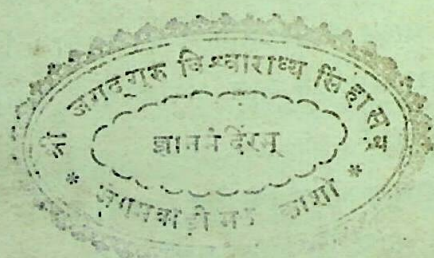 श्री जगद्गुरु विश्वाराध्य सिंहासन
ज्ञानमंदिरम्
जंगमवाड़ी मठ